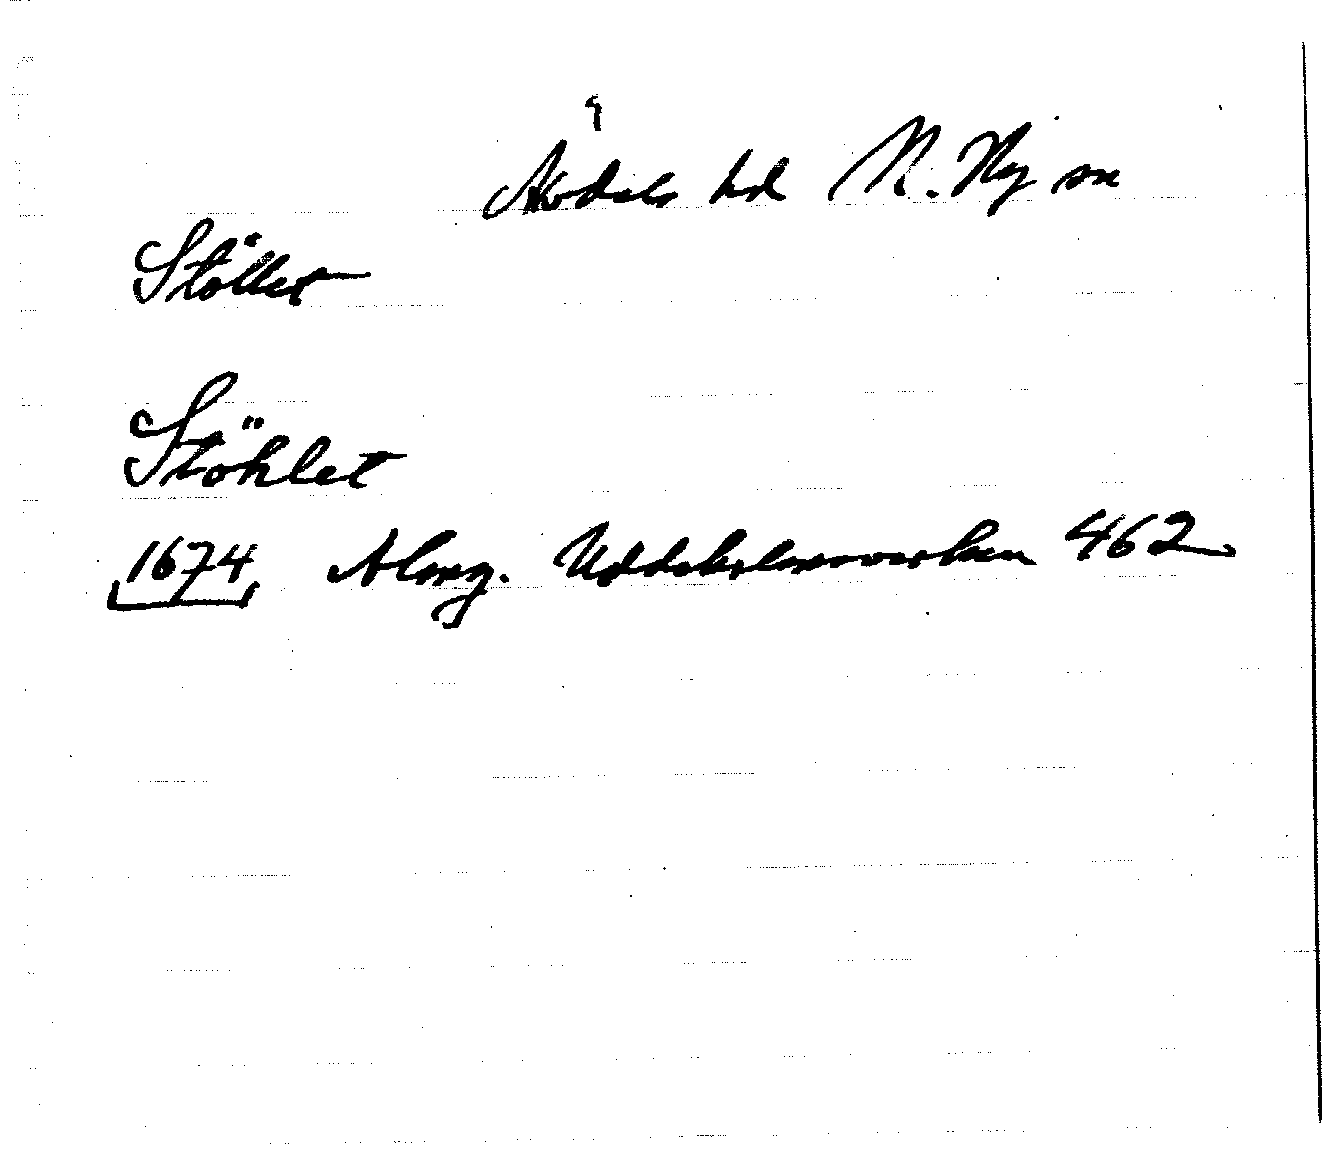 Älvdals hd N. Ny sn
Stöllet
Stöhlet
1674 Almq. Uddeholmsverken 462